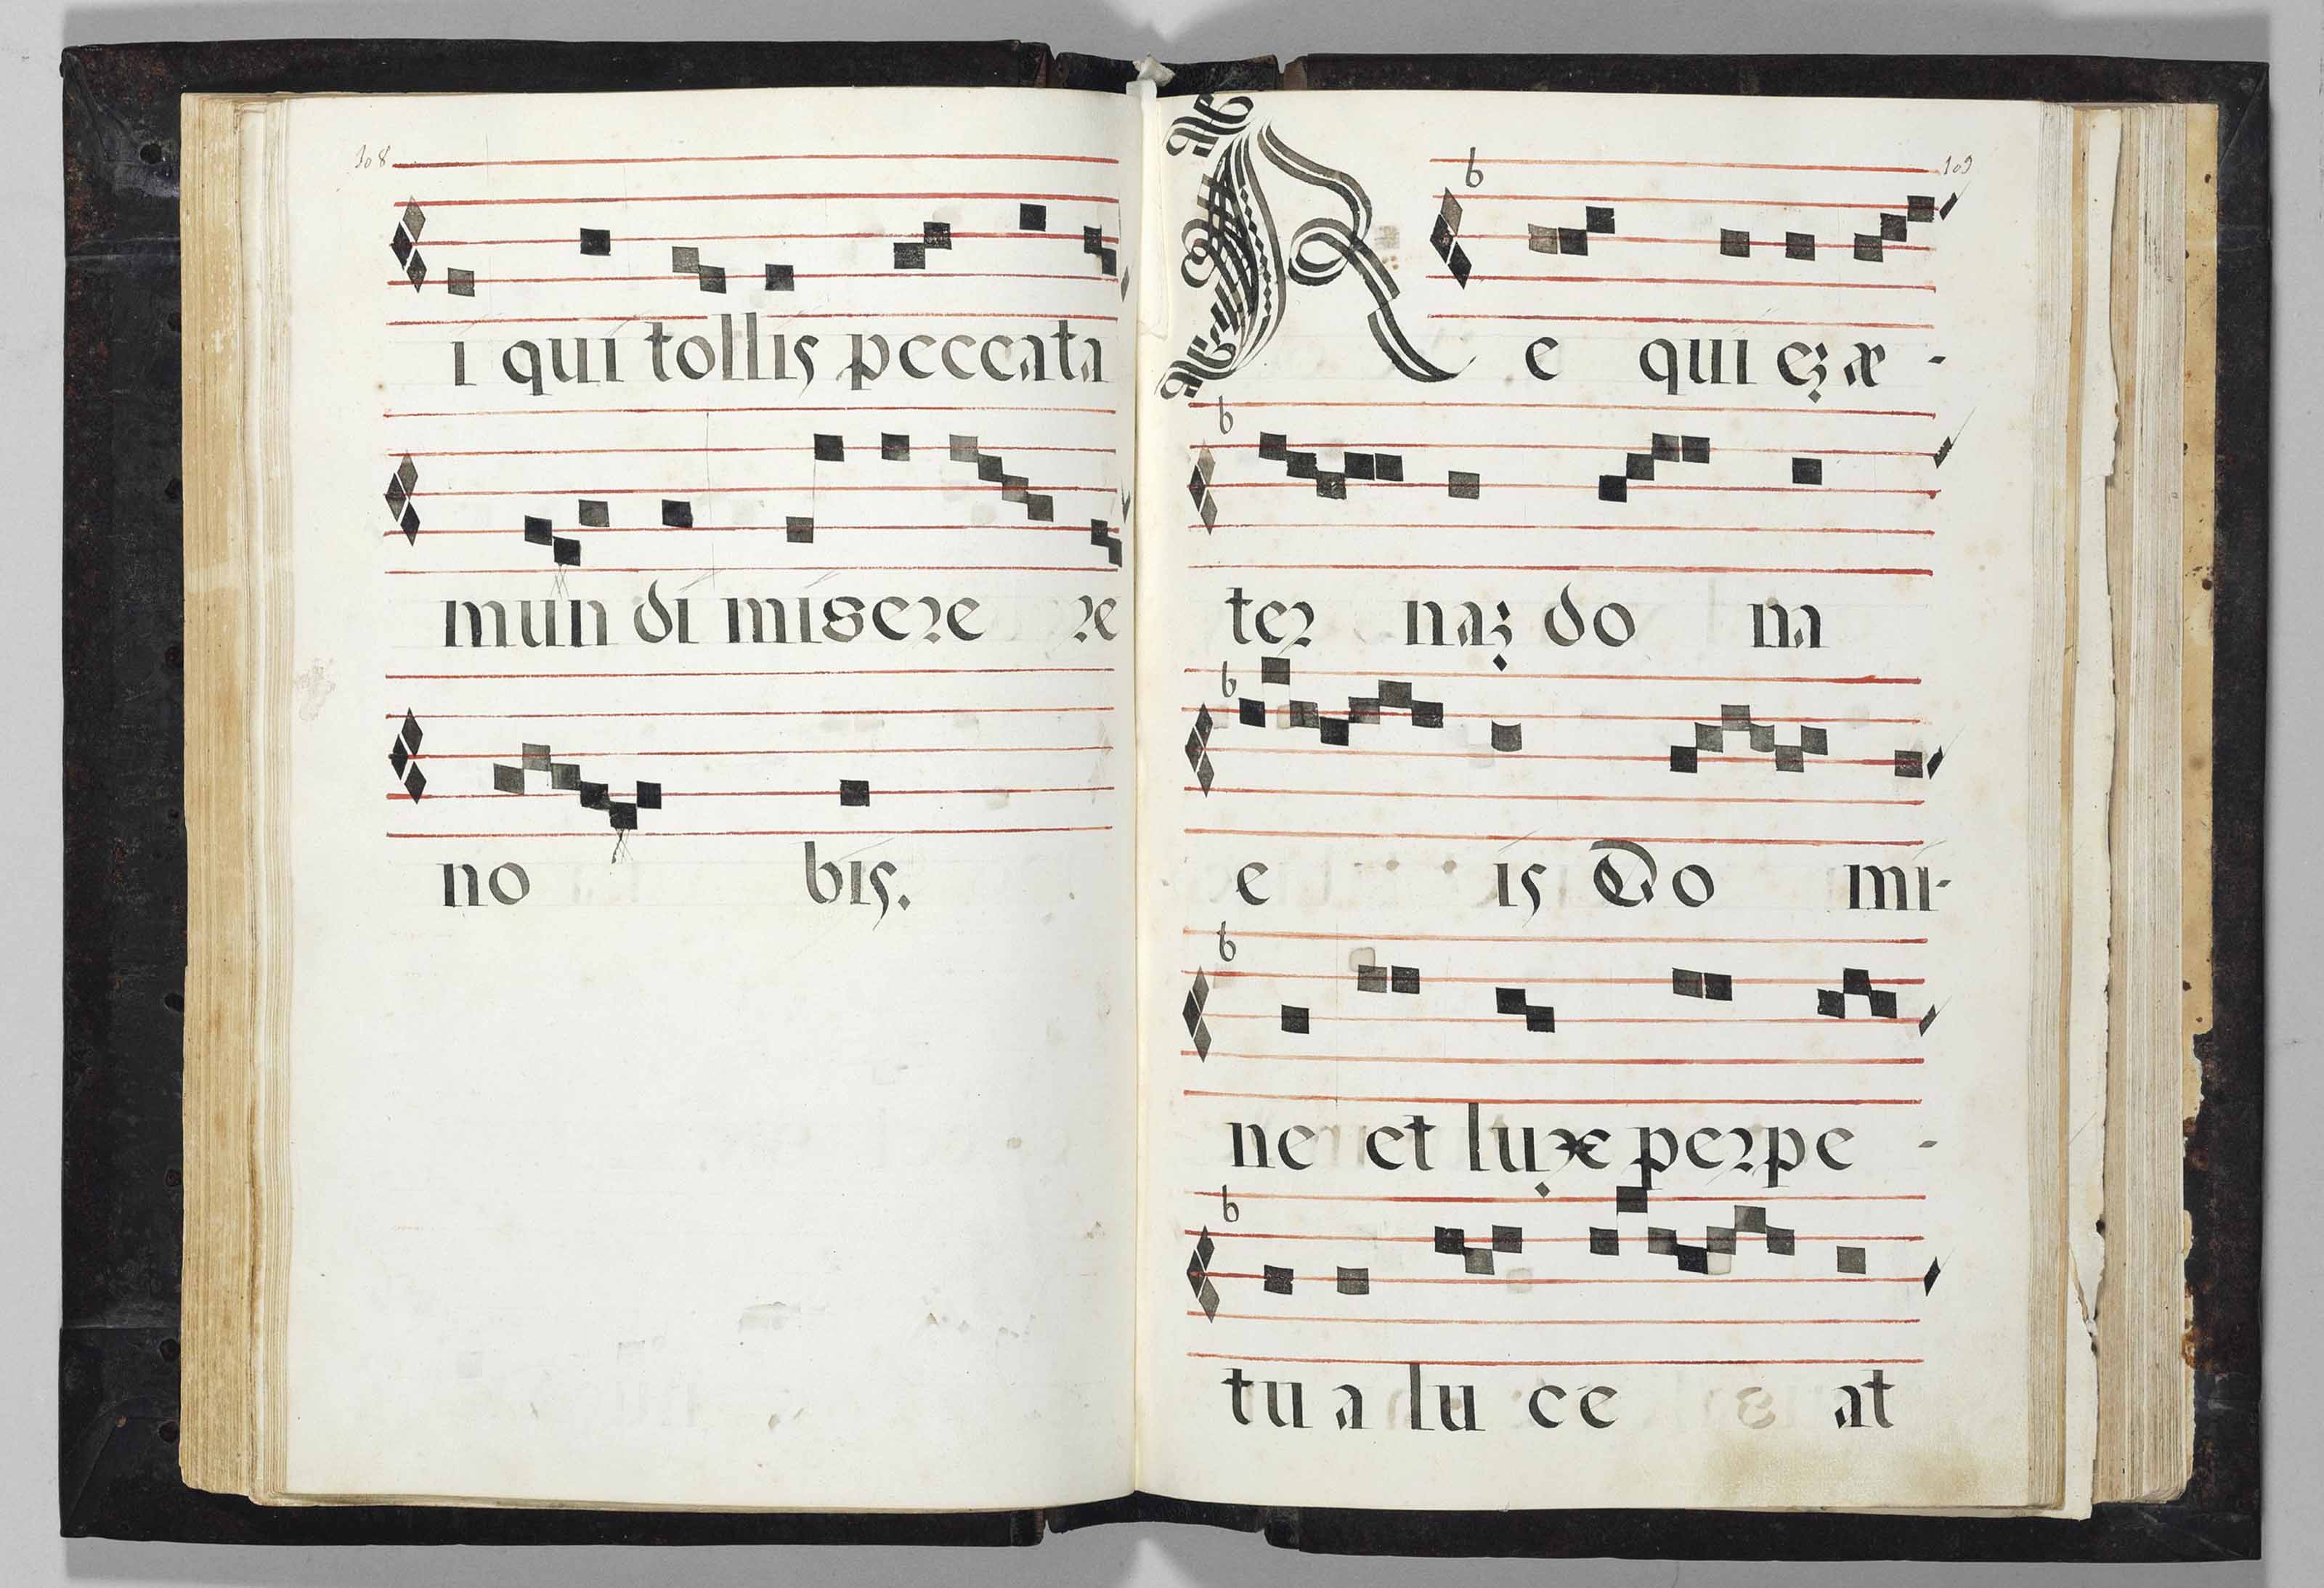 108
i qui tollis peccata
mun di misere re
no bis.
109
Re quiez æ -
ter naz do na
e is Do mi-
ne et lux perpe -
tu a lu ce at